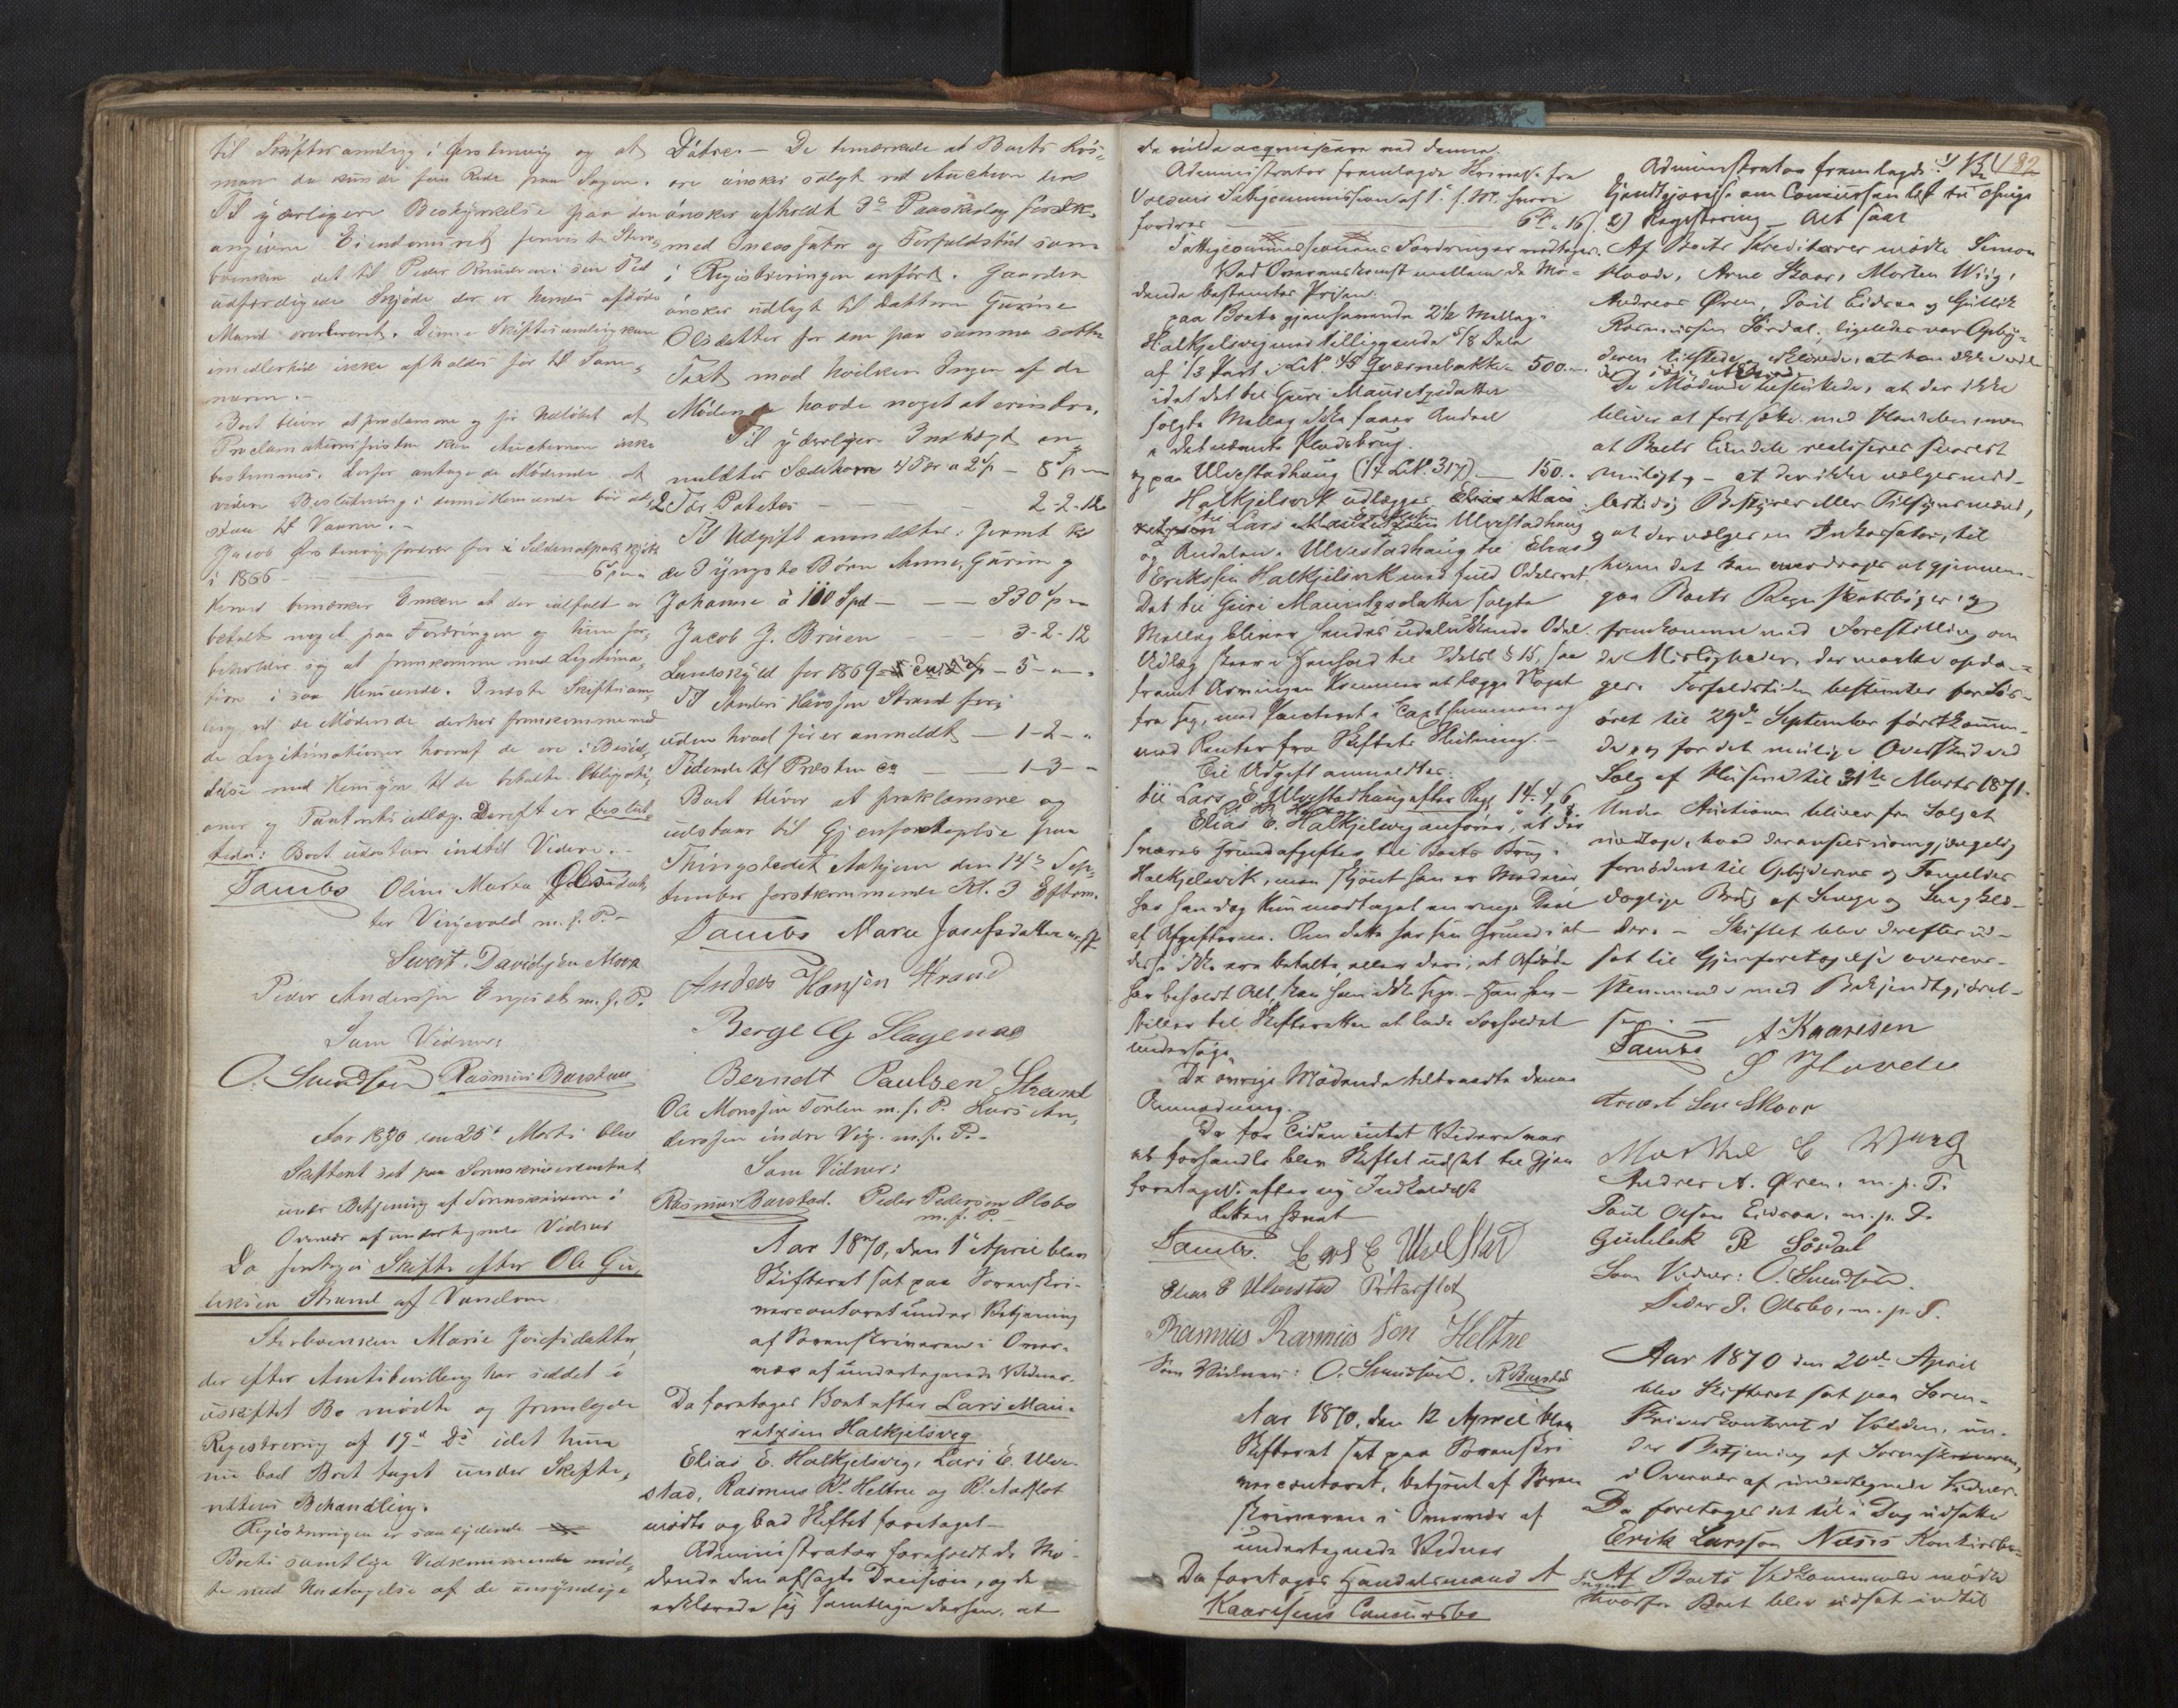 til Skiftesamling i Ørstenvig og at
man da kunde faa Rede paa Sagen.
Til yderligere Beskyrkelse paa den
angivne Eiendomsret henviste Sterv-
boenken det til Peder Knudsen i sin Tid
udfærdigede Skjøde der er hendes afdøde
Mand overleveret. Denne Skiftesamling kan
imidlertid ikke afholdes før til Som-
meren.-
Boet bliver at proclamere og før Udløbet af
Proclamationsfristen kan Auctionen ikke
bestemmes. Derfor antage de Mødende at
videre Beslutning i denne Henseende bør ud-
staa til Vaaren.-
Jacob Ørstenvig fordrer for
i 1866 - 6
Herved bemærker Enken at der ialfald er
betalt noget paa Fordringen og hun for-
beholder sig at fremkomme med Legitima-
tion i saa Henseende. I næste Skiftesam-
ling vil de Mødende derhos fremkomme med
de Legitimationer hvoraf de ere i Besid-
delse med Hensyn til de betalte Obligati-
oner og Panterets udlæg. Dereft er beslut-
tedes: Boet udsættes indtil Videre.-
Tambs Oline Marta
ter Vinjevold m. f. P.-
Sivert Davidsen Mork
Peder Andersen m. f. P.
Som Vidner:
O. Svendsen Rasmus Barstad
Aar 1870 den 25de Marts blev
Skifteret sat paa Sorenskrivercontoret
under Betjening af Sorenskriveren i
Overvær af undertegnede Vidner
Da foretoges Skifte efter Ole Gu-
liksen Strand af Vanelven
Stervboenken Marie Josefsdatter,
der efter Amtsbevilling har siddet i
uskiftet Bo mødte og fremlagde
Registrering af 19de ds idet hun
nu bad Boet taget under Skifte-
rettens Behandling.
Registreringen er saa lydende
Boets samtlige Vedkommende mød-
te med Undtagelse af de umyndige
Døtre.- De bemærkede at Boets Løs-
øre ønskes solgt ved Auction der
ønskes afholdt 3de Paaskedag førstk.
med Incassator og Forfaldstid som
i Registreringen anført. Gaarden
ønskes udlagt til Datteren Gurine
Olsdatter for den paa samme satte
Taxt, mod hvilken Ingen af de
Mødende havde noget at erindre.
Til yderligere Indtægt an-
meldtes Sædekorn 4 Tdr a 2 Sp - 8 Sp - -
2 Tdr Poteter - 2-2-12
Til Udgift anmeldtes: Hjemt til
de 3 yngste Børn Anne, Gurine og
Johanne à 110 Spd - 330 Sp -
Jacob J. Bruen - 3-2-12
Landskyld for 1869 - 5 - -
Til Anders Hansen Strand for-
uden hvad før er anmeldt - 1-2- "
Tiende til Præsten ca - 1-3- -
Boet bliver at proklamere og
udstaar til Gjenforetagelse paa
Thingstedet Aahjem den 14de Sep-
tember førstkommende Kl. 3 Efterm.
Tambs Marie Josefsdatter m. f. P.
Anders Hansen Strand
Berge G Slagenæs
Berndt Paulsen Strand
Ole Monssen m. f. P. Lars An-
derssen indre Vig. m. f. P.-
Som Vidner:
Rasmus Barstad. Peder Pedersen Olsbo
m. f. P.-
Aar 1870, den 1e April blev
Skifteret sat paa Sorenskri-
vercontoret under Betjening
af Sorenskriveren i Over-
vær af undertegnede Vidner.
Da foretoges Boet efter Lars Mau-
ritzsen Halkjelsvig
Elias E. Halkjelsvig, Lars E. Ulve-
stad, Rasmus R. Heltne og P. Aarflot
mødte og bad Skiftet foretaget.-
Administrator foreholdt de Mø-
dende den afsagte Decision, og de
erklærede sig samtlige derhen, at
de vilde acquiescere ved denne.
Administrator fremlagde Skrivelse fra
Voldens Fattigcommission af 1. f. M. hvori
fordres 6 " 16 s.
Fattigcommissionens Fordringer vedtages.
Ved Overenskomst mellem de Mø-
dende bestemtes Prisen
paa Boets gjenhavende 2½ Mællag i
Halkjelsvig med tilliggende 5/8 Dele
af 1/3 Part i LN. 45 Qværnebakke - 500.-
idet det til Guri Mauritzsdatter
solgte Mællag ikke faaer Andeel
i det nævnte Pladsbrug.
og paa Ulvestadhaug (LN. 317) - 150. -
Halkjelsvik udlægges Elias Mau-
ritzsen til Lars Ulvestadhaug
og Andelen i Ulvestadhaug til Elias
Erikssen Halkjelsvik med fuld Odelsret
Det til Guri Mauritzsdatter solgte
Mællag bliver hendes udelukkende Odel.
Udlæg skeer i Henhold til Odelsl § 15, saa-
fremt Arvingen kommer at lægge Noget
fra sig, med Panteret i Taxtsummen og
med Renter fra Skiftets Slutning.-
Til Udgift anmeldtes:
til Lars E. Ulvestadhaug efter Regn 14. 4. 6.
Elias E. Halkjelsvig anfører, at der
svares Grundafgifter til Boets Brug i
Halkjelsvik, men skjønt han er Medeier
har han dog kun modtaget en ringe Deel
af Afgifterne. Om dette har sin Grund i at
disse ikke ere betalte eller deri, at Afdøde
har beholdt Alt, kan han ikke sige.- Han hen-
stiller til Skifteretten at lade Forholdet
undersøge.
De øvrige Mødende tiltraadte denne
Anmodning.
Da for Tiden intet Videre var
at forhandle blev Skiftet udsat til Gjen-
foretagelse efter ny Indkaldelse
Tambs. Lars E Ulvestad
Elias E Ulvestad P Aarflot
Rasmus Rasmus Søn Heltne
Som Vidner: O. Svendsen. R Barstad
Aar 1870, den 12 April blev
Skifteret sat paa Sorenskri-
vercontoret, betjent af Soren-
skriveren i Overvær af
undertegnede Vidner
Da foretoges Handelsmand A
Kaaresens Concursbo
182
Administrator fremlagde: 1)
Kjendtgjørelse om Concursen
2) Registrering Alt saa
Af Boets Kreditorer mødte Simon
Hovde, Arne Skaar, Morten Wiig,
Andreas Øren, Poul Eidsaa og Gullik
Rasmussen Sørdal; ligeledes var Opby-
deren tilstede og erklærede, at han ikke
De Mødende besluttede, at der ikke
bliver at fortsætte med Handelen, men
at Boets Eiendele realiseres snarest
muligt, - at der ikke vælges mid-
lertidig Bestyrer eller Tilsynsmænd,
og at der vælges en Inkassator, til
hvem det kan overdrages at gjennem-
gaa Boets Regnskabsbøger og
fremkomme med Forestilling om
de Misligheder, der maatte opda-
ges. Forfaldstiden bestemtes for Løs-
øret til 29de September førstkommen-
de, og for det mulige Overskud ved
Salg af Husene til 31te Marts 1871.
Under Auctionen bliver fra Salg at
undtage, hvad der ansees uomgjængelig
fornødent til Opbyderens og Families
daglige Brug af Senge og Sengklæ-
der. - Skiftet blev derefter ud-
sat til Gjenforetagelse overens-
stemmende med Bekjendtgjørel-
sen. - A Kaaresen
Tambs S Hovde
Arne Skaar
Morten E Wiig
Andreas A. Øren. m. p. P.
Poul Olsen Eidsaa, m. p. P.
Gullak R Sørdal
Som Vidner: O. Svendsen.
Peder P. Olsbo, m. p. P.
Aar 1870 den 20de April
blev Skifteret sat paa Soren-
skriverkontoret i Volden, un-
der Betjening af Sorenskriveren,
i Overvær af undertegnede Vidner.
Da foretoges det til i Dag udsatte
Erik Larssen Næsses Konkursbo
Af Boets Vedkommende mødte
Ingen
hvorfor Boet blev udsat indtil